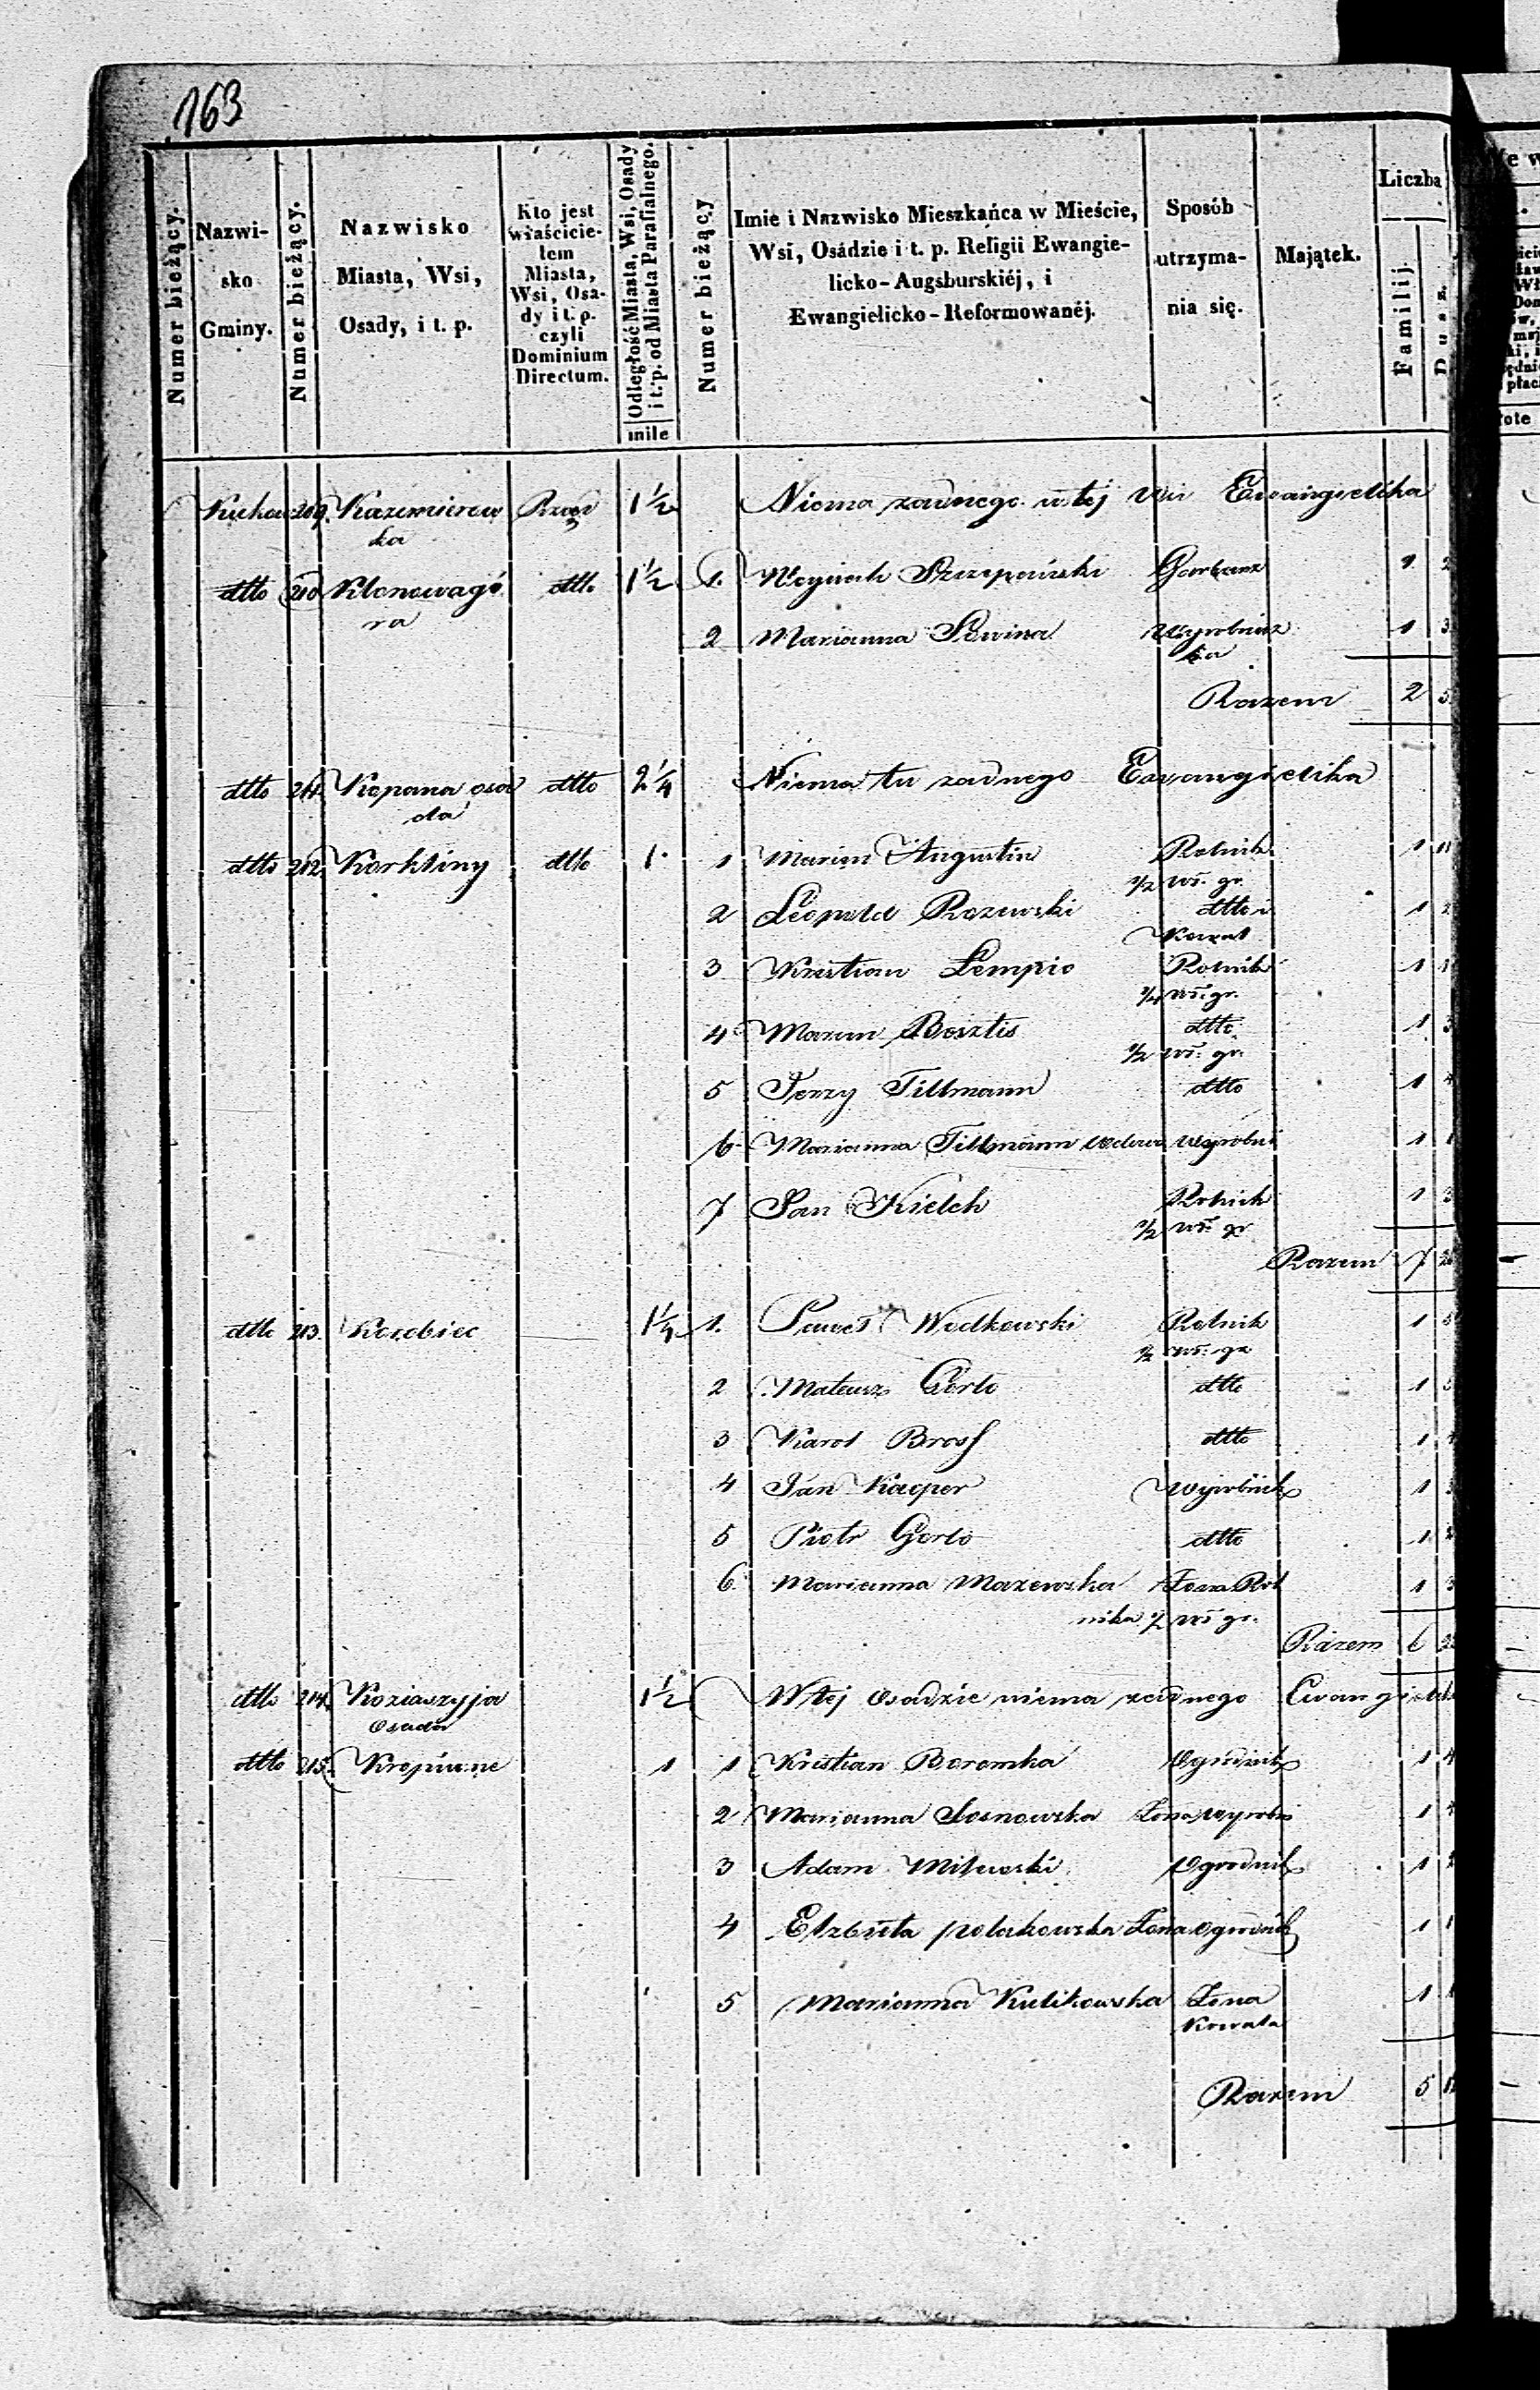 163
Numer bieżący.
Nazwi-
sko
Gminy.
Numer bieżący.
Nazwisko
Miasta, Wsi,
Osady, i t. p.
Kto jest
właścicie-
lem
Miasta,
Wsi, Osa-
dy i t. p.
czyli
Dominium
Directum.
Odległość Miasta, Wsi, Osady
i t. p. od Miasta Parafialnego.
mile
Numer bieżący
Imie i Nazwisko Mieszkańca w Mieście,
Wsi, Osádzie i t. p. Religii Ewangie-
licko-Augsburskiéj, i
Ewangielicko-Reformowanéj.
Sposób
utrzyma-
nia się.
Majątek.
Liczba
Familij.
Dusz.
209. Kazimirow Rząd 1½ Niema zadnego w tej Wsi Ewangielika
ka
dtto 210 Klonowagó dtto 1½ 1. Woyciech Szczepański Garbarz 1 2
ra
2 Marianna Sowina Wyrobnicz 1 3
ka
Razem 2 5
dtto 211. Kopana osa dtto 2¼ Niema tu zadnego Ewangielika
da
dtto 212. Korkliny dtto 1. 1 Marcin Augustin Rolnik 1 11
½ wł. gr.
2 Leopold Rozewski dtto i 1 2
Kowal
3 Kristian Lempio Rolnik 1
¼ wł. gr.
4 Bosztis dtto 1 3
½ wł. gr.
5 Jerzy Tillmann dtto 1 4
6 Marianna Tillmann wdowa wyrobni 1 1
7 Jan Kielch Rolnik 1 3
½ wł. gr
Razem 7
dtto 213. 1¼ 1. Paweł Wodkowski Rolnik 1 5
½ wł. gr
2 Mateusz Gorlo dtto 1 5
3 Karol Bross dtto 1
4 Jan Kacper wyrobnik 1
5 Piotr Gorlo dtto 1 2
6 Marianna Mazewska Zona Rol 1 3
nika ½ wł gr.
Razem 6
dtto 214. Koziaszyja 1½ W tej osadzie niema zadnego Ewangielika
Osada
dtto 215. Kropiwne 1 1 Kristian Boromka Ogrodnik 1 4
2 Marianna Sosnowska Zona wyrobni 1
3 Adam Milewski Ogrodnik 1 2
4 Elzbieta polakowska Zona ogrodnik 1 1
5 Marianna Kulikowska Zona 1 1
Kowala
Razem 5